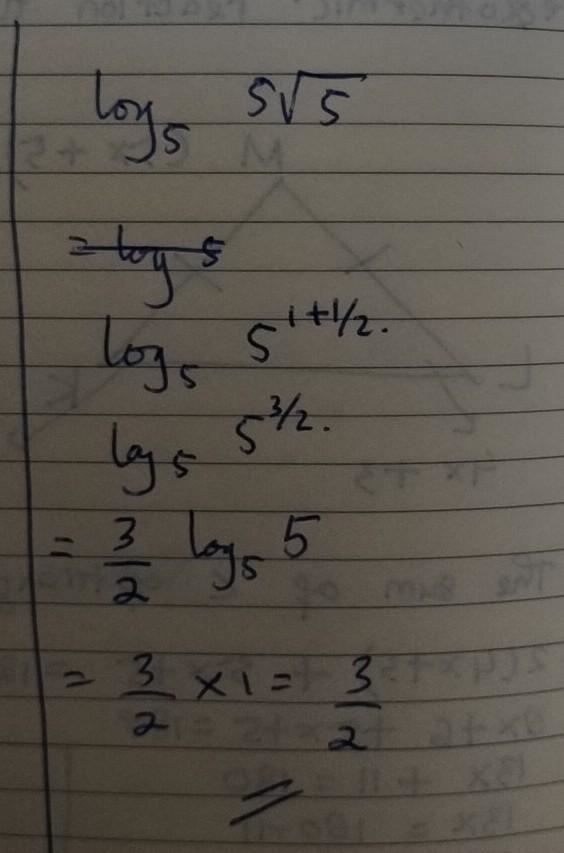 log₅ 5√5
= log 5
log₅ 5^{1+1/2}.
log₅ 5^{3/2}.
= 3/2 log₅ 5
= 3/2 × 1 = 3/2